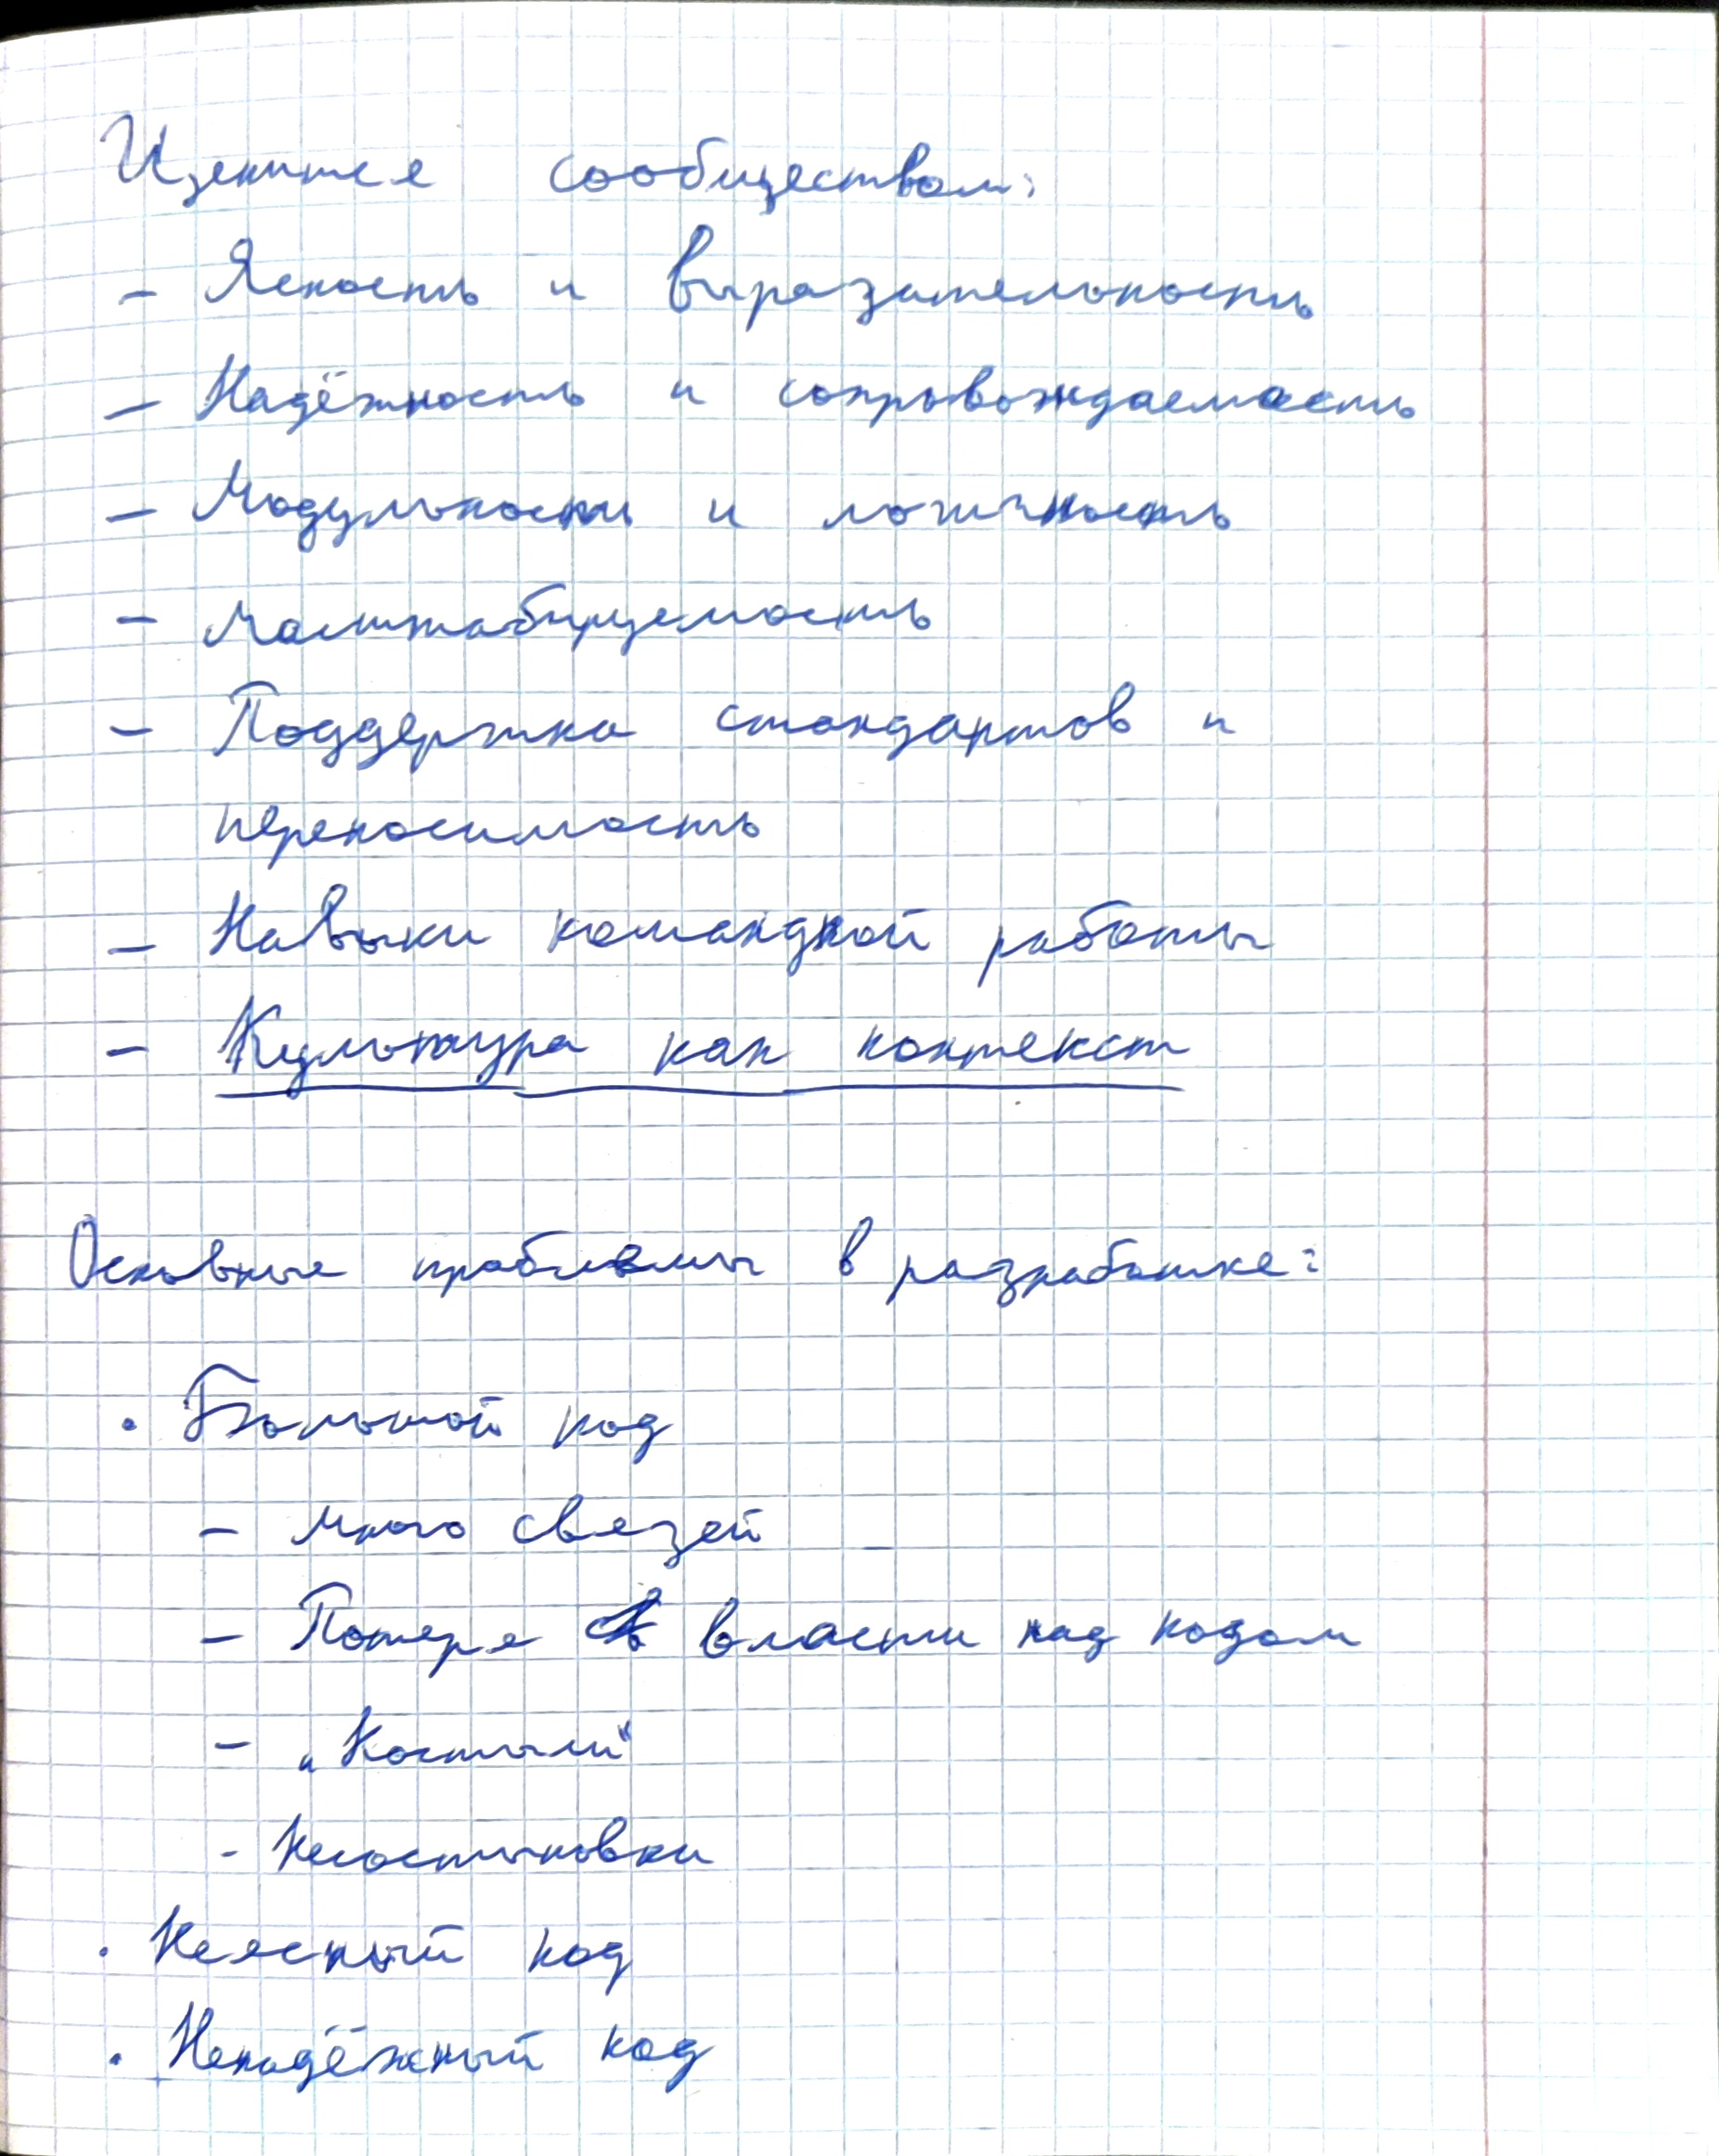 Ценится сообществом:
- Ясность и выразительность
- Надёжность и сопровождаемость
- Модульность и логичность
- Масштабируемость
- Поддержка стандартов и
переносимость
- Навыки командной работы
- Культура как контекст
Основные проблемы в разработке:
• Большой код
- Много связей
- Потеря власти над кодом
- „Костыли“
- Несостыковки
• Неясный код
• Ненадёжный код